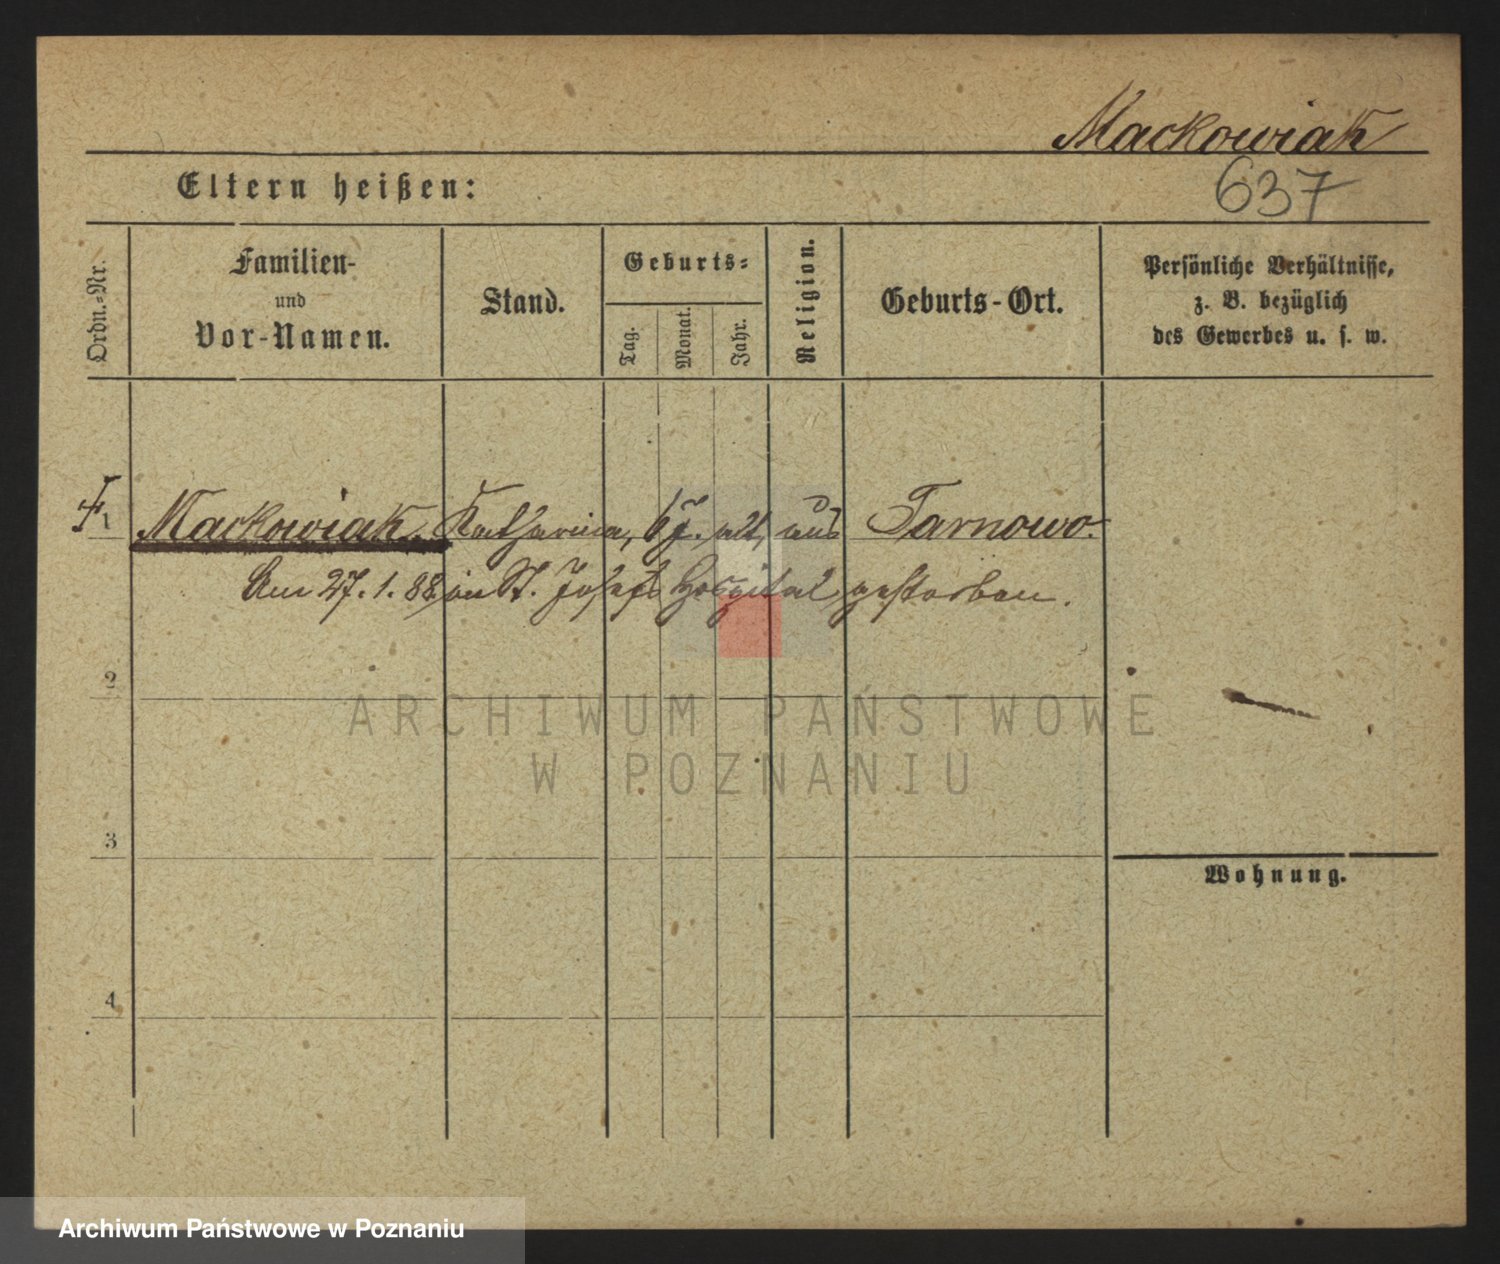 Mackowiak
637
Eltern heißen:
Ordn.-Nr.
Familien-
und
Vor-Namen.
Stand.
Geburts-
Tag.
Monat.
Jahr.
Religion.
Geburts-Ort.
Persönliche Verhältnisse,
z. B. bezüglich
des Gewerbes u. s. w.
1 Mackowiak, Katharina, 6 J. alt, aus Tarnowo.
Am 27.1.88 in St. Josefs Hospital gestorben.
2
ARCHIWUM PAŃSTWOWE
W POZNANIU
3
Wohnung.
4
Archiwum Państwowe w Poznaniu